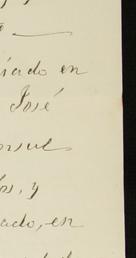 iado en
José
onsul
os, y
ado, en